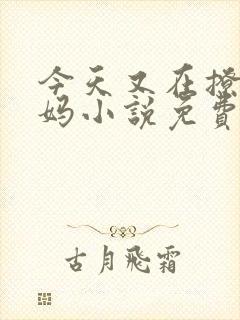 今天又在撩
妈小说免费
古月飛霜